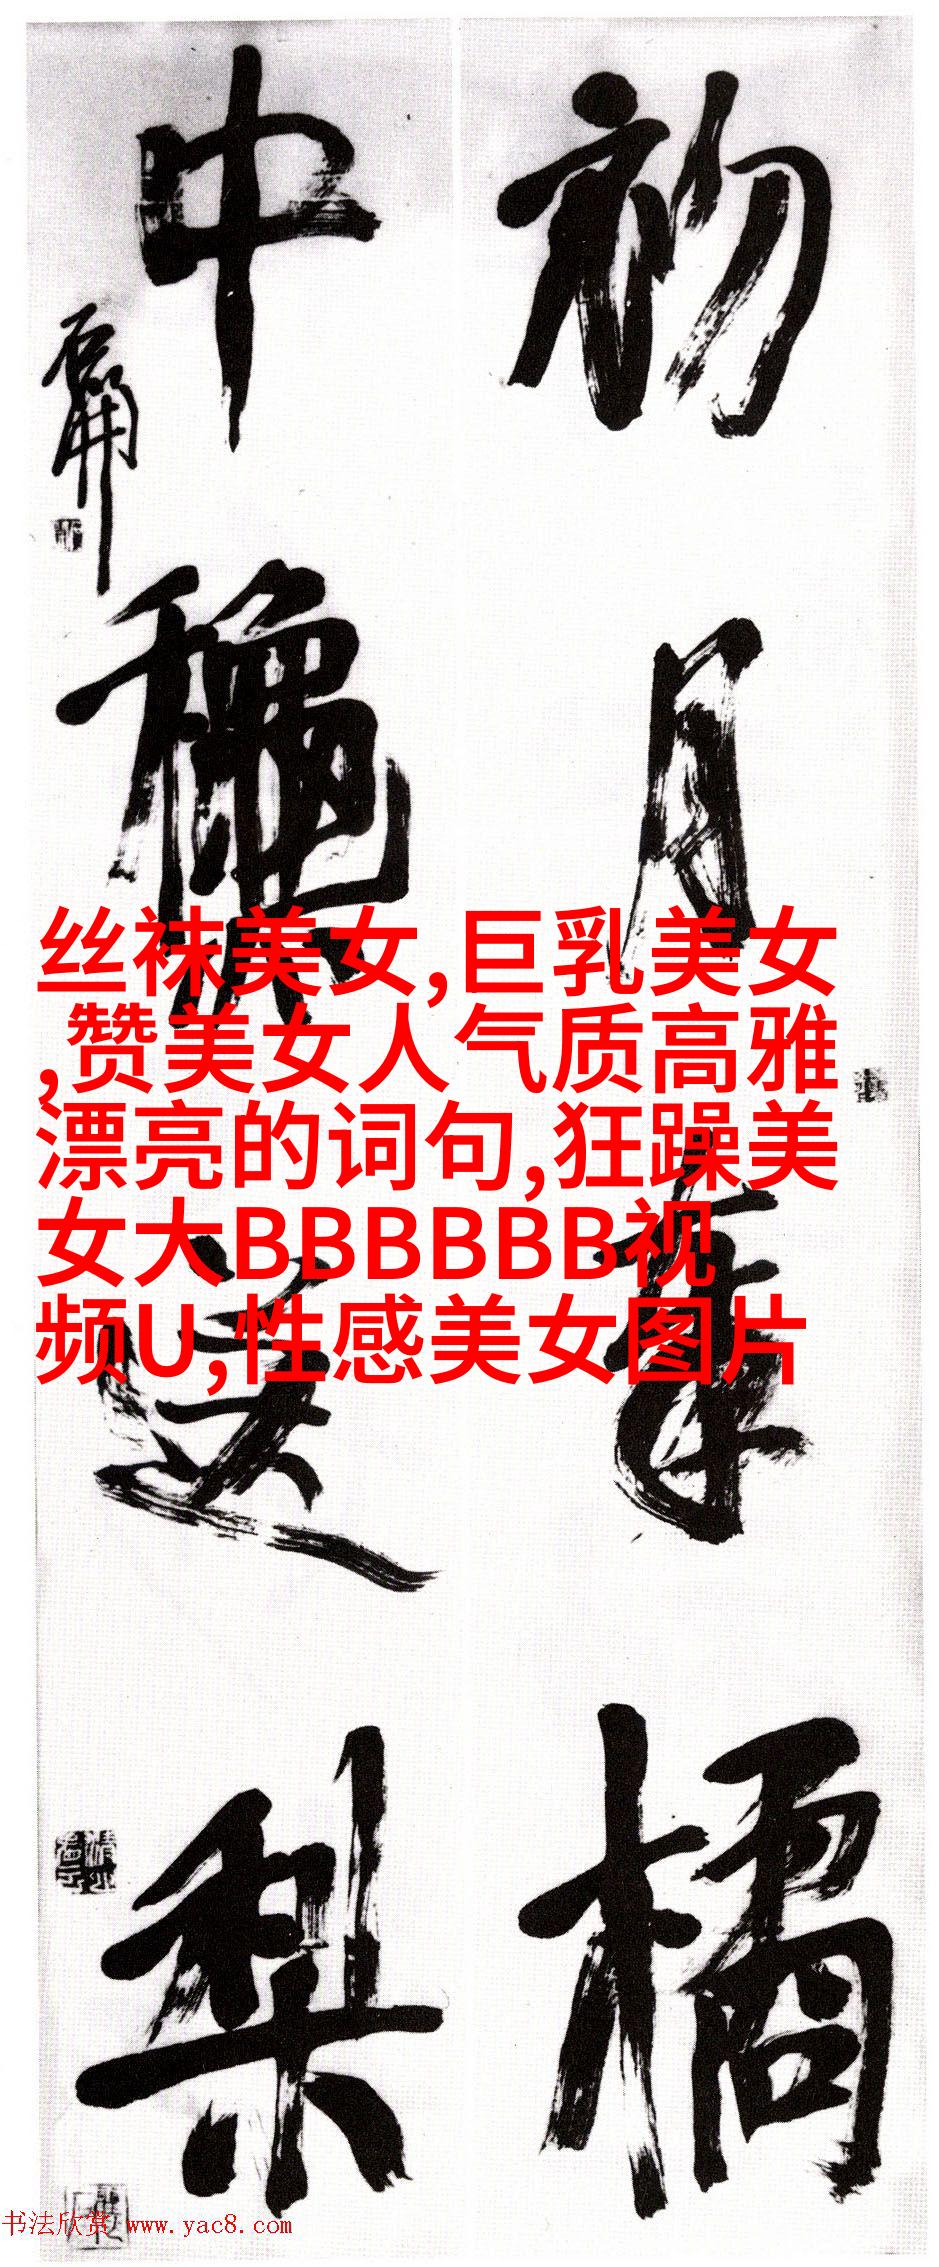 初月奉橘
中龝送梨
丝袜美女,巨乳美女
,赞美女人气质高雅
漂亮的词句,狂躁美
女大BBBBBB视
频U,性感美女图片
书法欣赏 www.yac8.com